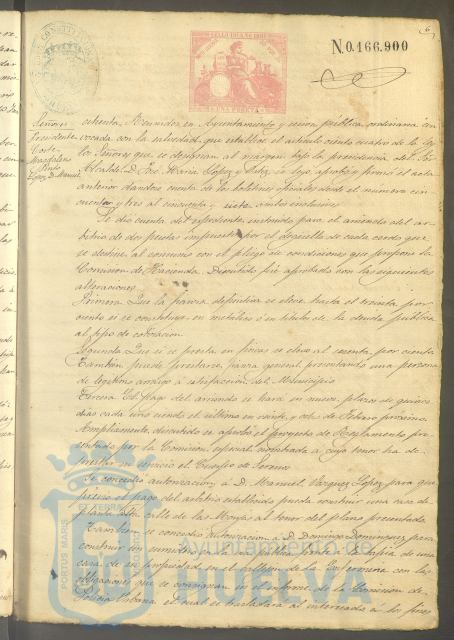 6
SELLO 10º
UNA PESETA
N.0.166.900
Señores
Presidente
Corte
López D. Manuel
ochenta, Reunidos en Ayuntamiento y sesion publica ordinaria con
vocada con la salvedad que establece el articulo ciento cuatro de la ley
los Señores que se designan al margen bajo la presidencia del Sor
Alcalde D. José Maria Lopez y se leyó aprobó y firmó el acta
anterior dandose cuenta de los boletines oficiales desde el numero cin
cuenta y tres al cincuenta y siete ambos inclusives
Se dió cuenta del espediente instruido para el arriendo del ar
bitrio de dos pesetas impuesto por el degüello de cada cerdo que
se destine al consumo con el pliego de condiciones que propone la
Comision de Hacienda. Discutido fué aprobado con las siguientes
alteraciones
Primera Que la fianza definitiva se eleve hasta el treinta por
ciento si se constituye en metalico ó en titulos de la deuda publica
al tipo de cotizacion
Segunda Que si se presta en fincas se eleve al sesenta por ciento
Tambien puede prestarse fianza general presentando una persona
de legitimo arraigo á satisfaccion del Municipio
Tercera El pago del arriendo se hará en nueve plazos de quince
dias cada uno siendo el último en veinte y ocho de Febrero proximo
Ampliamente discutido se aprobó el proyecto de Reglamento pre
sentado por la Comision especial nombrada á cuyo tenor ha de
prestar su servicio el Cuerpo de Serenos
Se concedió autorizacion á D. Manuel Vazquez Lopez para que
previo el pago del arbitrio establecido pueda construir una casa de
planta calle de las Monjas al tenor del plano presentado
Tambien se concedió autorizacion á D. Domingo Dominguez para
construir un
casa de su propiedad en el callejon de la con las
obligaciones que se consignan en el informe de la Comision de
Policia Urbana el cual se trasladará al interesado á los fines
PORTUS MARIS
Ayuntamiento de
HUELVA